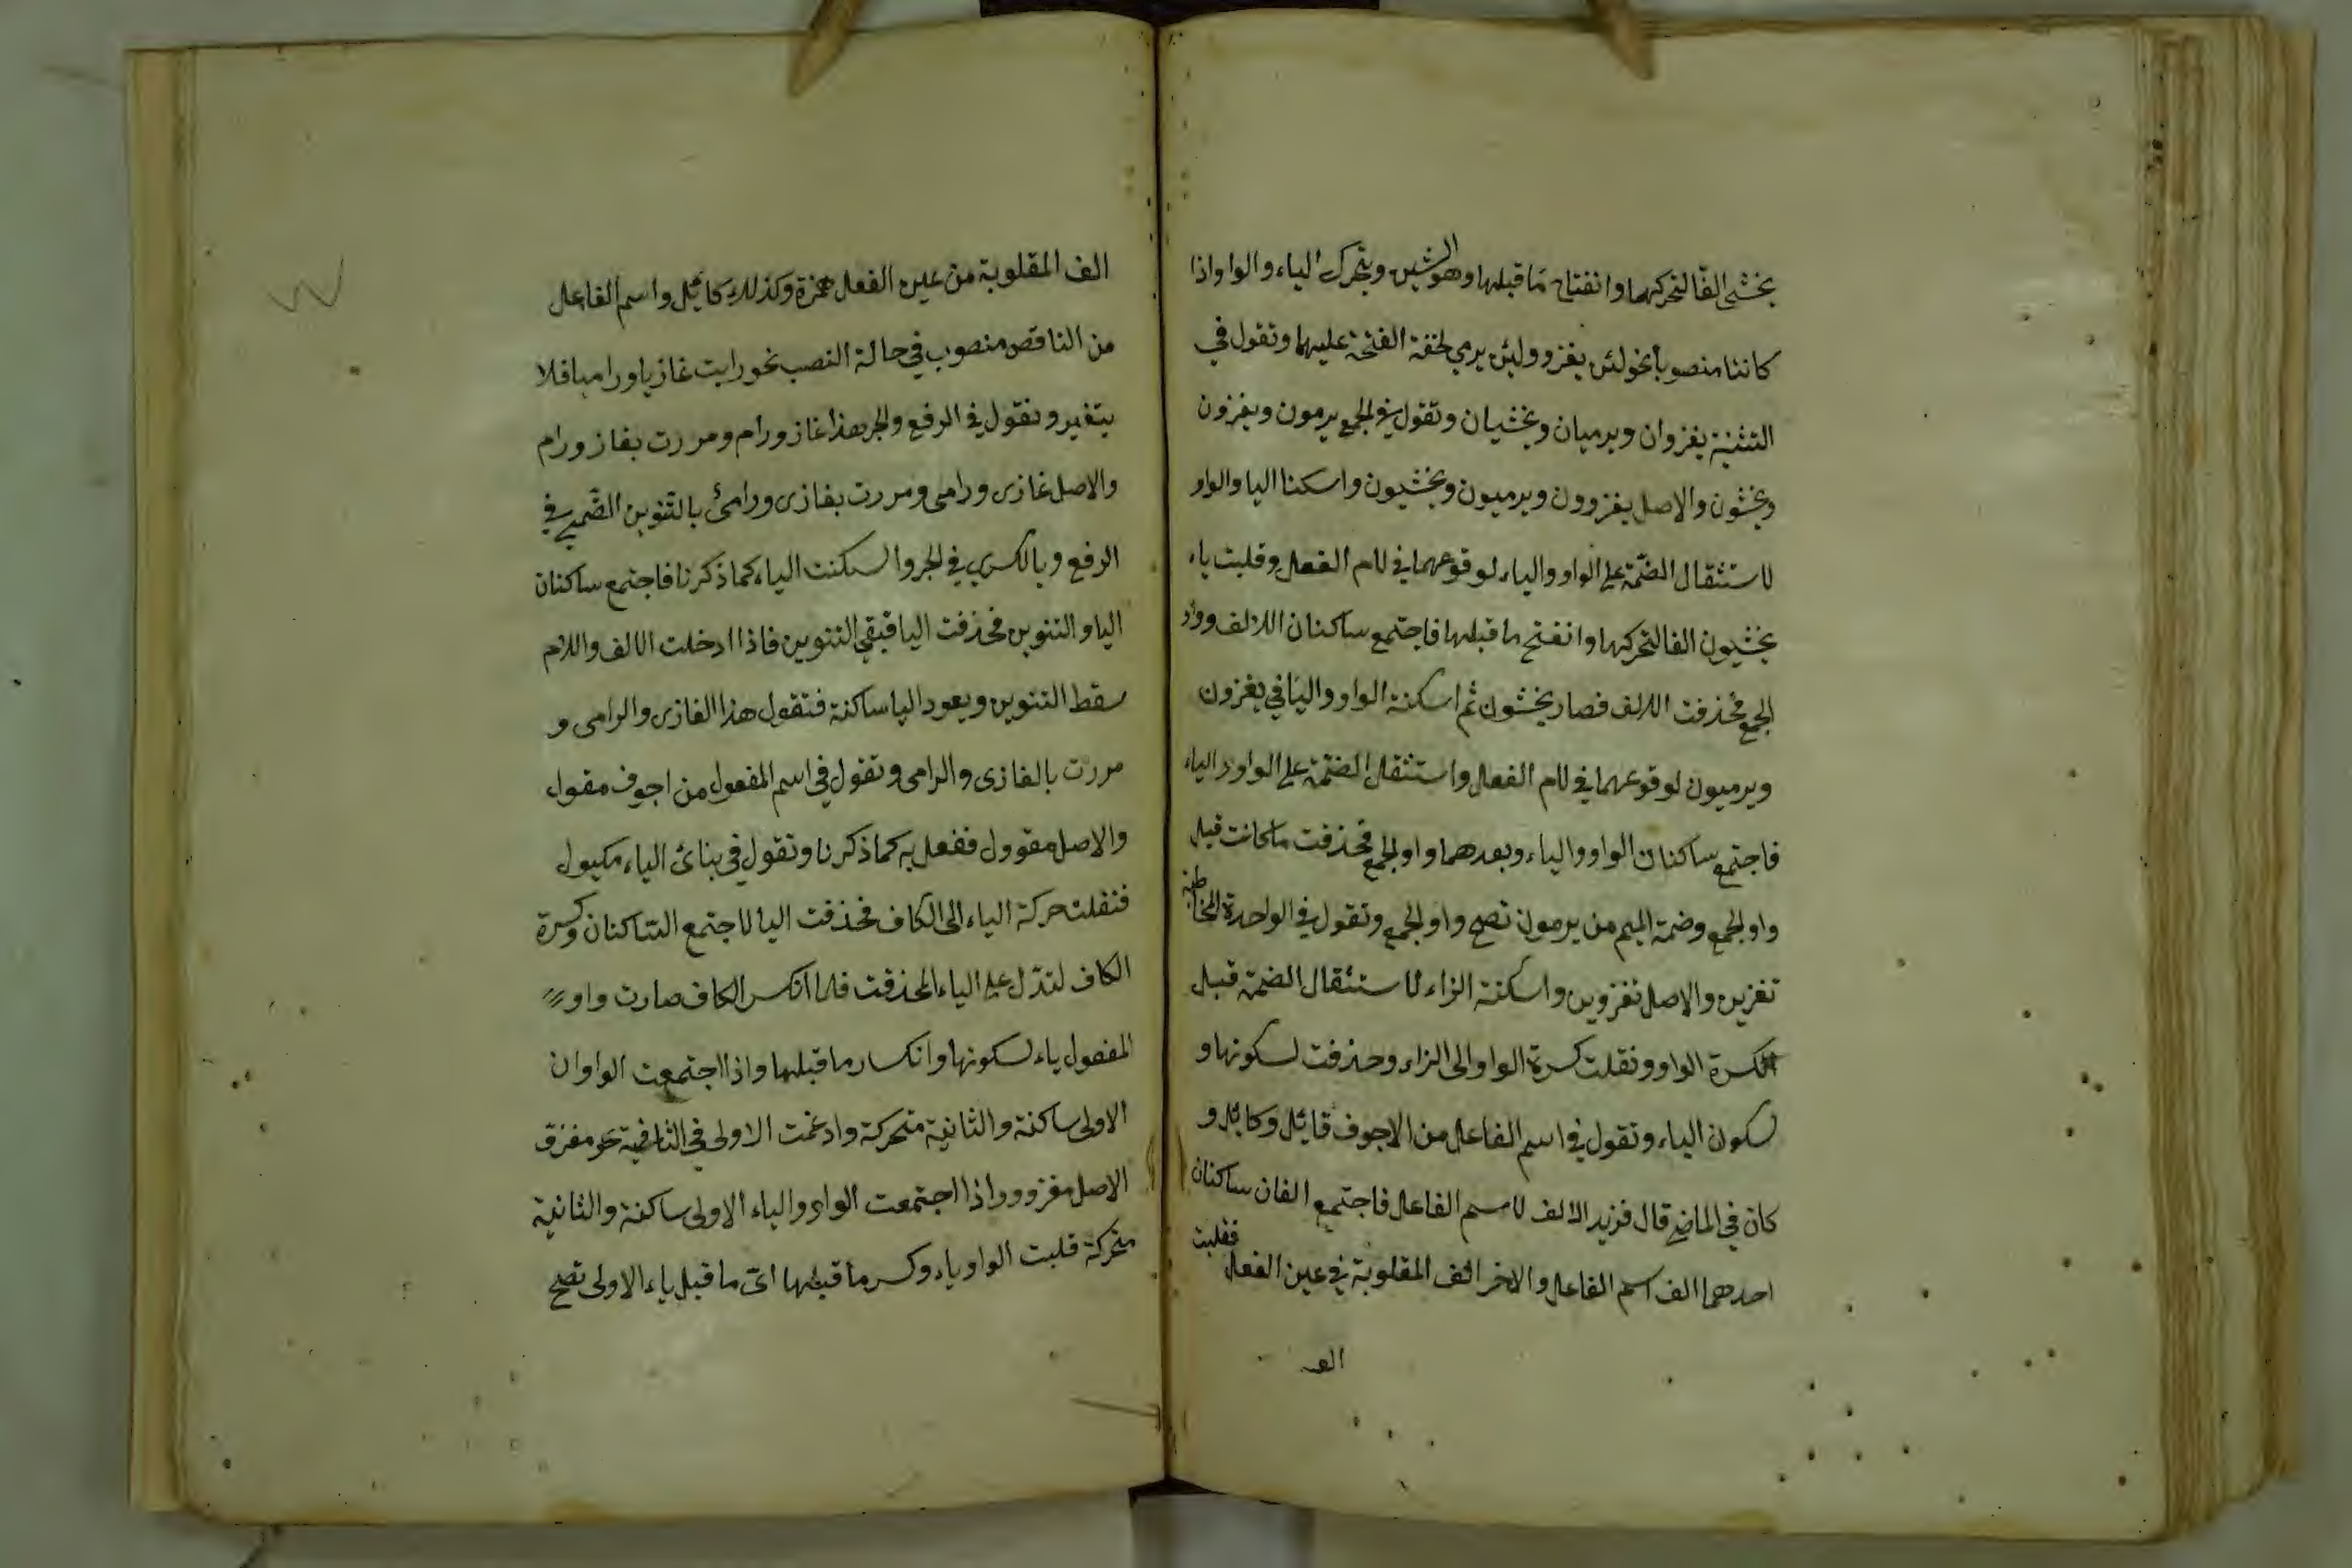 يخشى الفًا لتحركهما وانفتاح مَا قبلها وهو الشين ويتحرك الياء والواو اذا
كانتا منصوباً نحو لئن يغزو ولئن يرمي لخفة الفتحة عليهما وتقول في
التثنية يغزوان ويرميان ويخشيان وتقول في الجمع يرمون ويغزون
ويخشون والاصل يغزوون ويرميون ويخشيون واسكنا اليا والواو
لاستثقال الضمّة على الواو والياء لوقوعهما في لام الفعل وقلبت ياء
يخشيون الفا لتحركها وانفتح ما قبلها فاجتمع ساكنان الالف وواو
الجمع فحذفت الالف فصار يخشون ثم اسكنة الواو واليَا في يغزون
ويرميون لوقوعهما في لام الفعل واستثقل الضمّة على الواو والياء
فاجتمع ساكنان الواو والياء وبعدهما واو الجمع فحذفت ما كانت قبل
واو الجمع وضمة الميم من يرمون تصح واو الجمع وتقول في الواحدة المخاطبة
تغزين والاصل تغزوين واسكنة الزاء لاستثقال الضمّة قبل
الكسرة الواو ونقلت كسرة الواو الى الزاء وحذفت لسكونها و
لسكون الياء وتقول في اسم الفاعل من الاجوف قائل وكائل و
كان في الماضي قال فزيد الالف لاسم الفاعل فاجتمع الفان ساكنان
احدهما الف اسم الفاعل والاخر الف المقلوبة في عين الفعل فقلبت
الف
الف المقلوبة من عين الفعل همزة وكذلك كائل واسم الفاعل
من الناقص منصوب في حالة النصب نحو رايت غازيا وراميا فلا
يتغير وتقول في الرفع والجر هذا غاز ورام ومررت بغاز ورام
والاصل غازى ورامى ومررت بغازى ورامئ بالتنوين الضّمي في
الرفع وبالكسري في الجر واسكنت الياء كما ذكرنا فاجتمع ساكنان
اليا والتنوين فحذفت اليا فبقي التنوين فاذا ادخلت الالف واللام
سقط التنوين ويعود اليا ساكنة فتقول هذا الغازى والرامى و
مررت بالغازى والرامى وتقول في اسم المفعول من اجوف مقول
والاصل مقوول ففعل به كما ذكرنا وتقول في بنائ الياء مكيول
فنقلت حركة الياء الى الكاف فحذفت اليا لاجتمع الساكنان وكسرة
الكاف لتدّل على الياء المحذفت فلما انكسر الكاف صارت واو
المفعول ياء لسكونها وانكسار ما قبلها واذا اجتمعت الواوان
الاولى ساكنة والثانية متحركة وادغمت الاولى في الثانية نحو مغزو
الاصل مغزوو واذا اجتمعت الواو والياء الاولى ساكنة والثانية
متحركة قلبت الواو ياء وكسر ما قبلها اى ما قبل ياء الاولى تصح